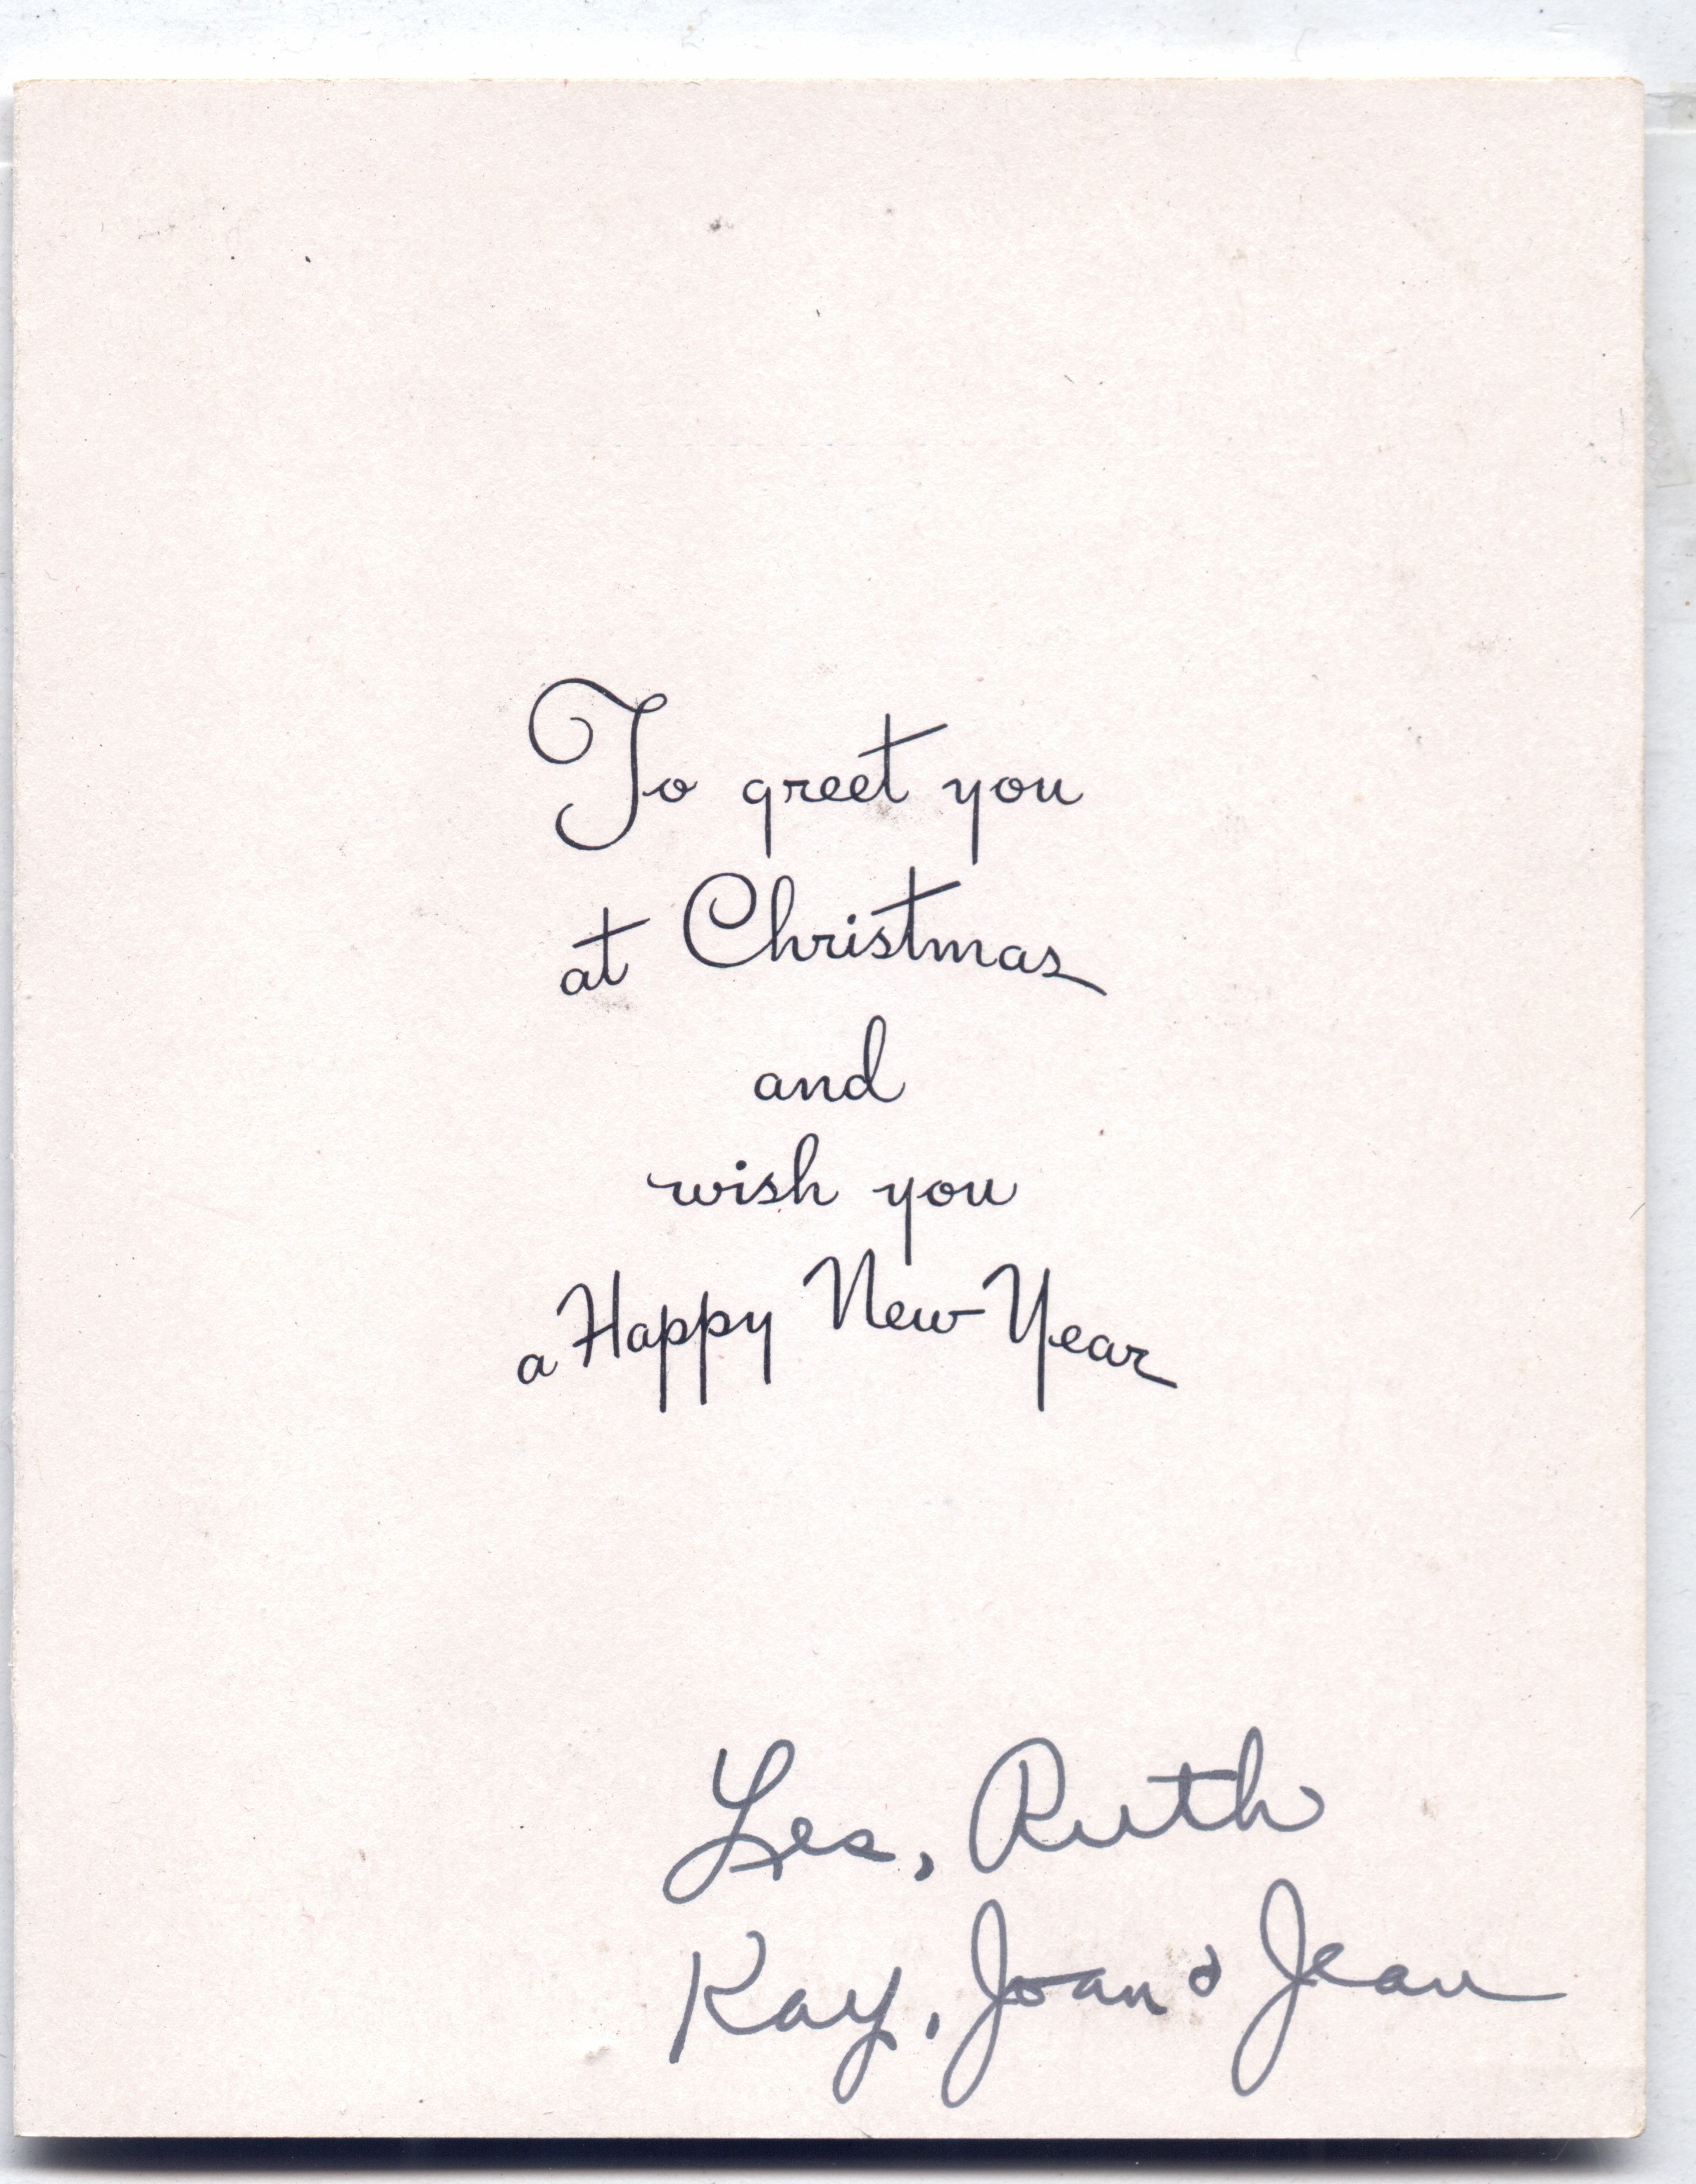 To greet you
at Christmas
and
wish you
a Happy New Year
Les, Ruth
Kay, Joan & Jean